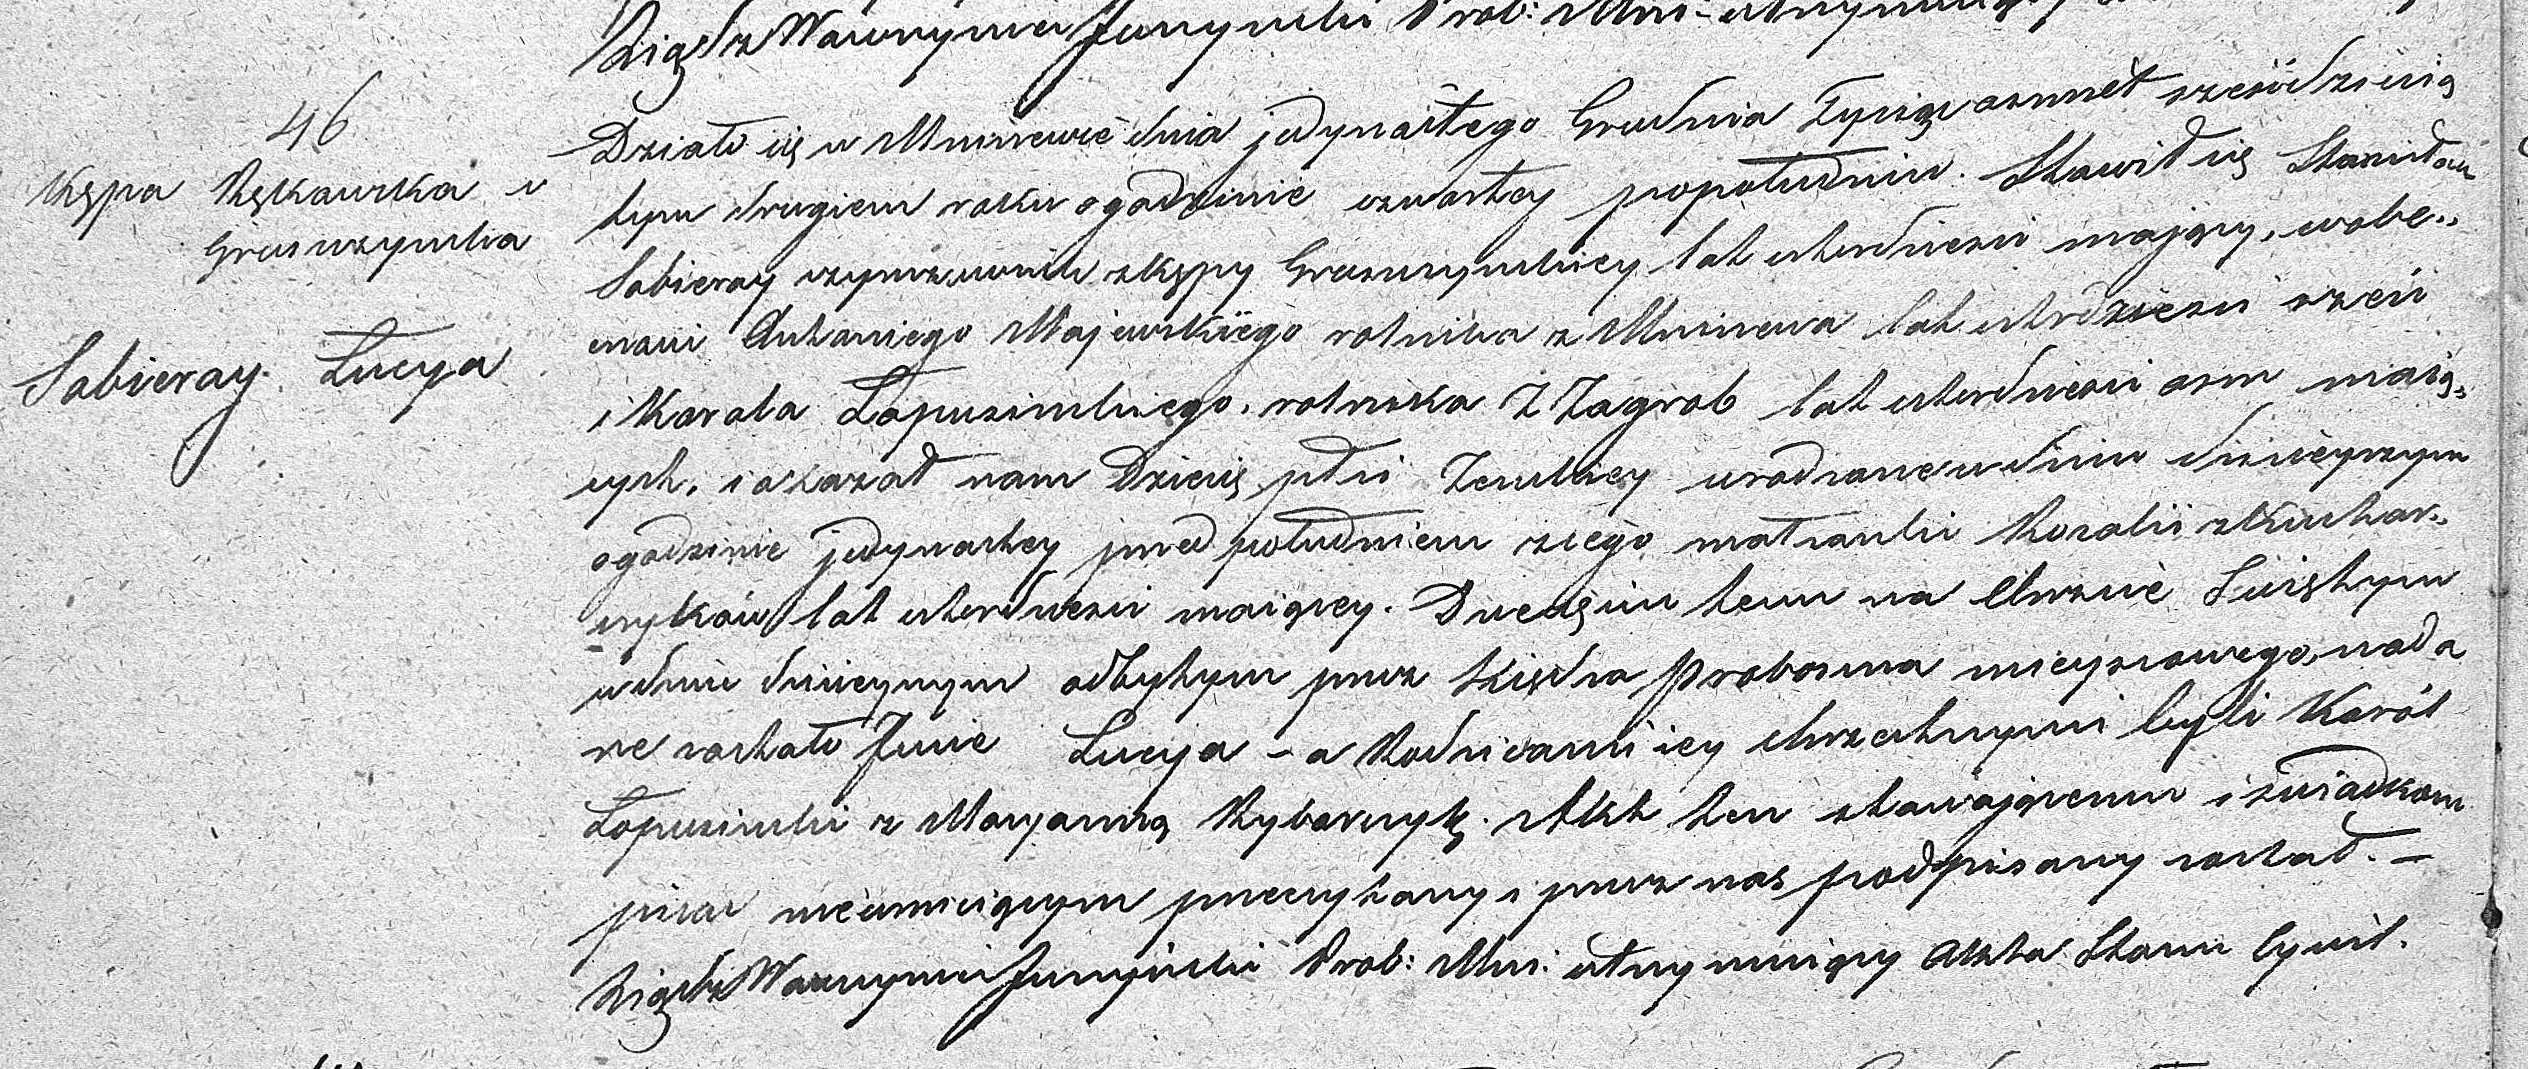 Xiądz Wawrzyniec Jurzyński Prob: Mni: utrzymuiący
46
Kępa Rękawska v
Gruszczynska
Sobieray. Łucya
Działo się w Mniszewie dnia jedynastego Grudnia Tysiąc osmset sześćdziesią
tym drugiem roku o godzinie czwartey popołudniu. Stawił się Stanisław
Sobieray czynszownik z Kępy Gruszczynskiey lat czterdzieści maiący, w obe„
cności Antoniego Majewskiego rolnika z Mniszewa lat czterdzieści sześć
i Karola Łopusinskiego, rolnika z Zagrob lat czterdzieści osm maią„
cych, i okazał nam Dziecię płci Zenskiey urodzone w dniu dzisieyszym
o godzinie jedynastey przed południem z iego małżonki Rozalii z Kuchar„
czyków lat czterdzieści maiącey. Dziecięciu temu na Chrzcie Swiętym
w dniu dzisieyszym odbytym przez Xiędza Proboszcza mieyscowego, nada
ne zostało Imie Łucya – a Rodzicami iey chrzestnymi byli Karól
Łopusinski z Maryanną Rybarczyk. Akt ten stawaiącemu i świadkom
pisać nieumieiącym przeczytany i przez nas podpisany został. –
Xiądz Wawrzyniec Jurzyński Prob: Mni: utrzymuiący Akta Stanu Cywil.